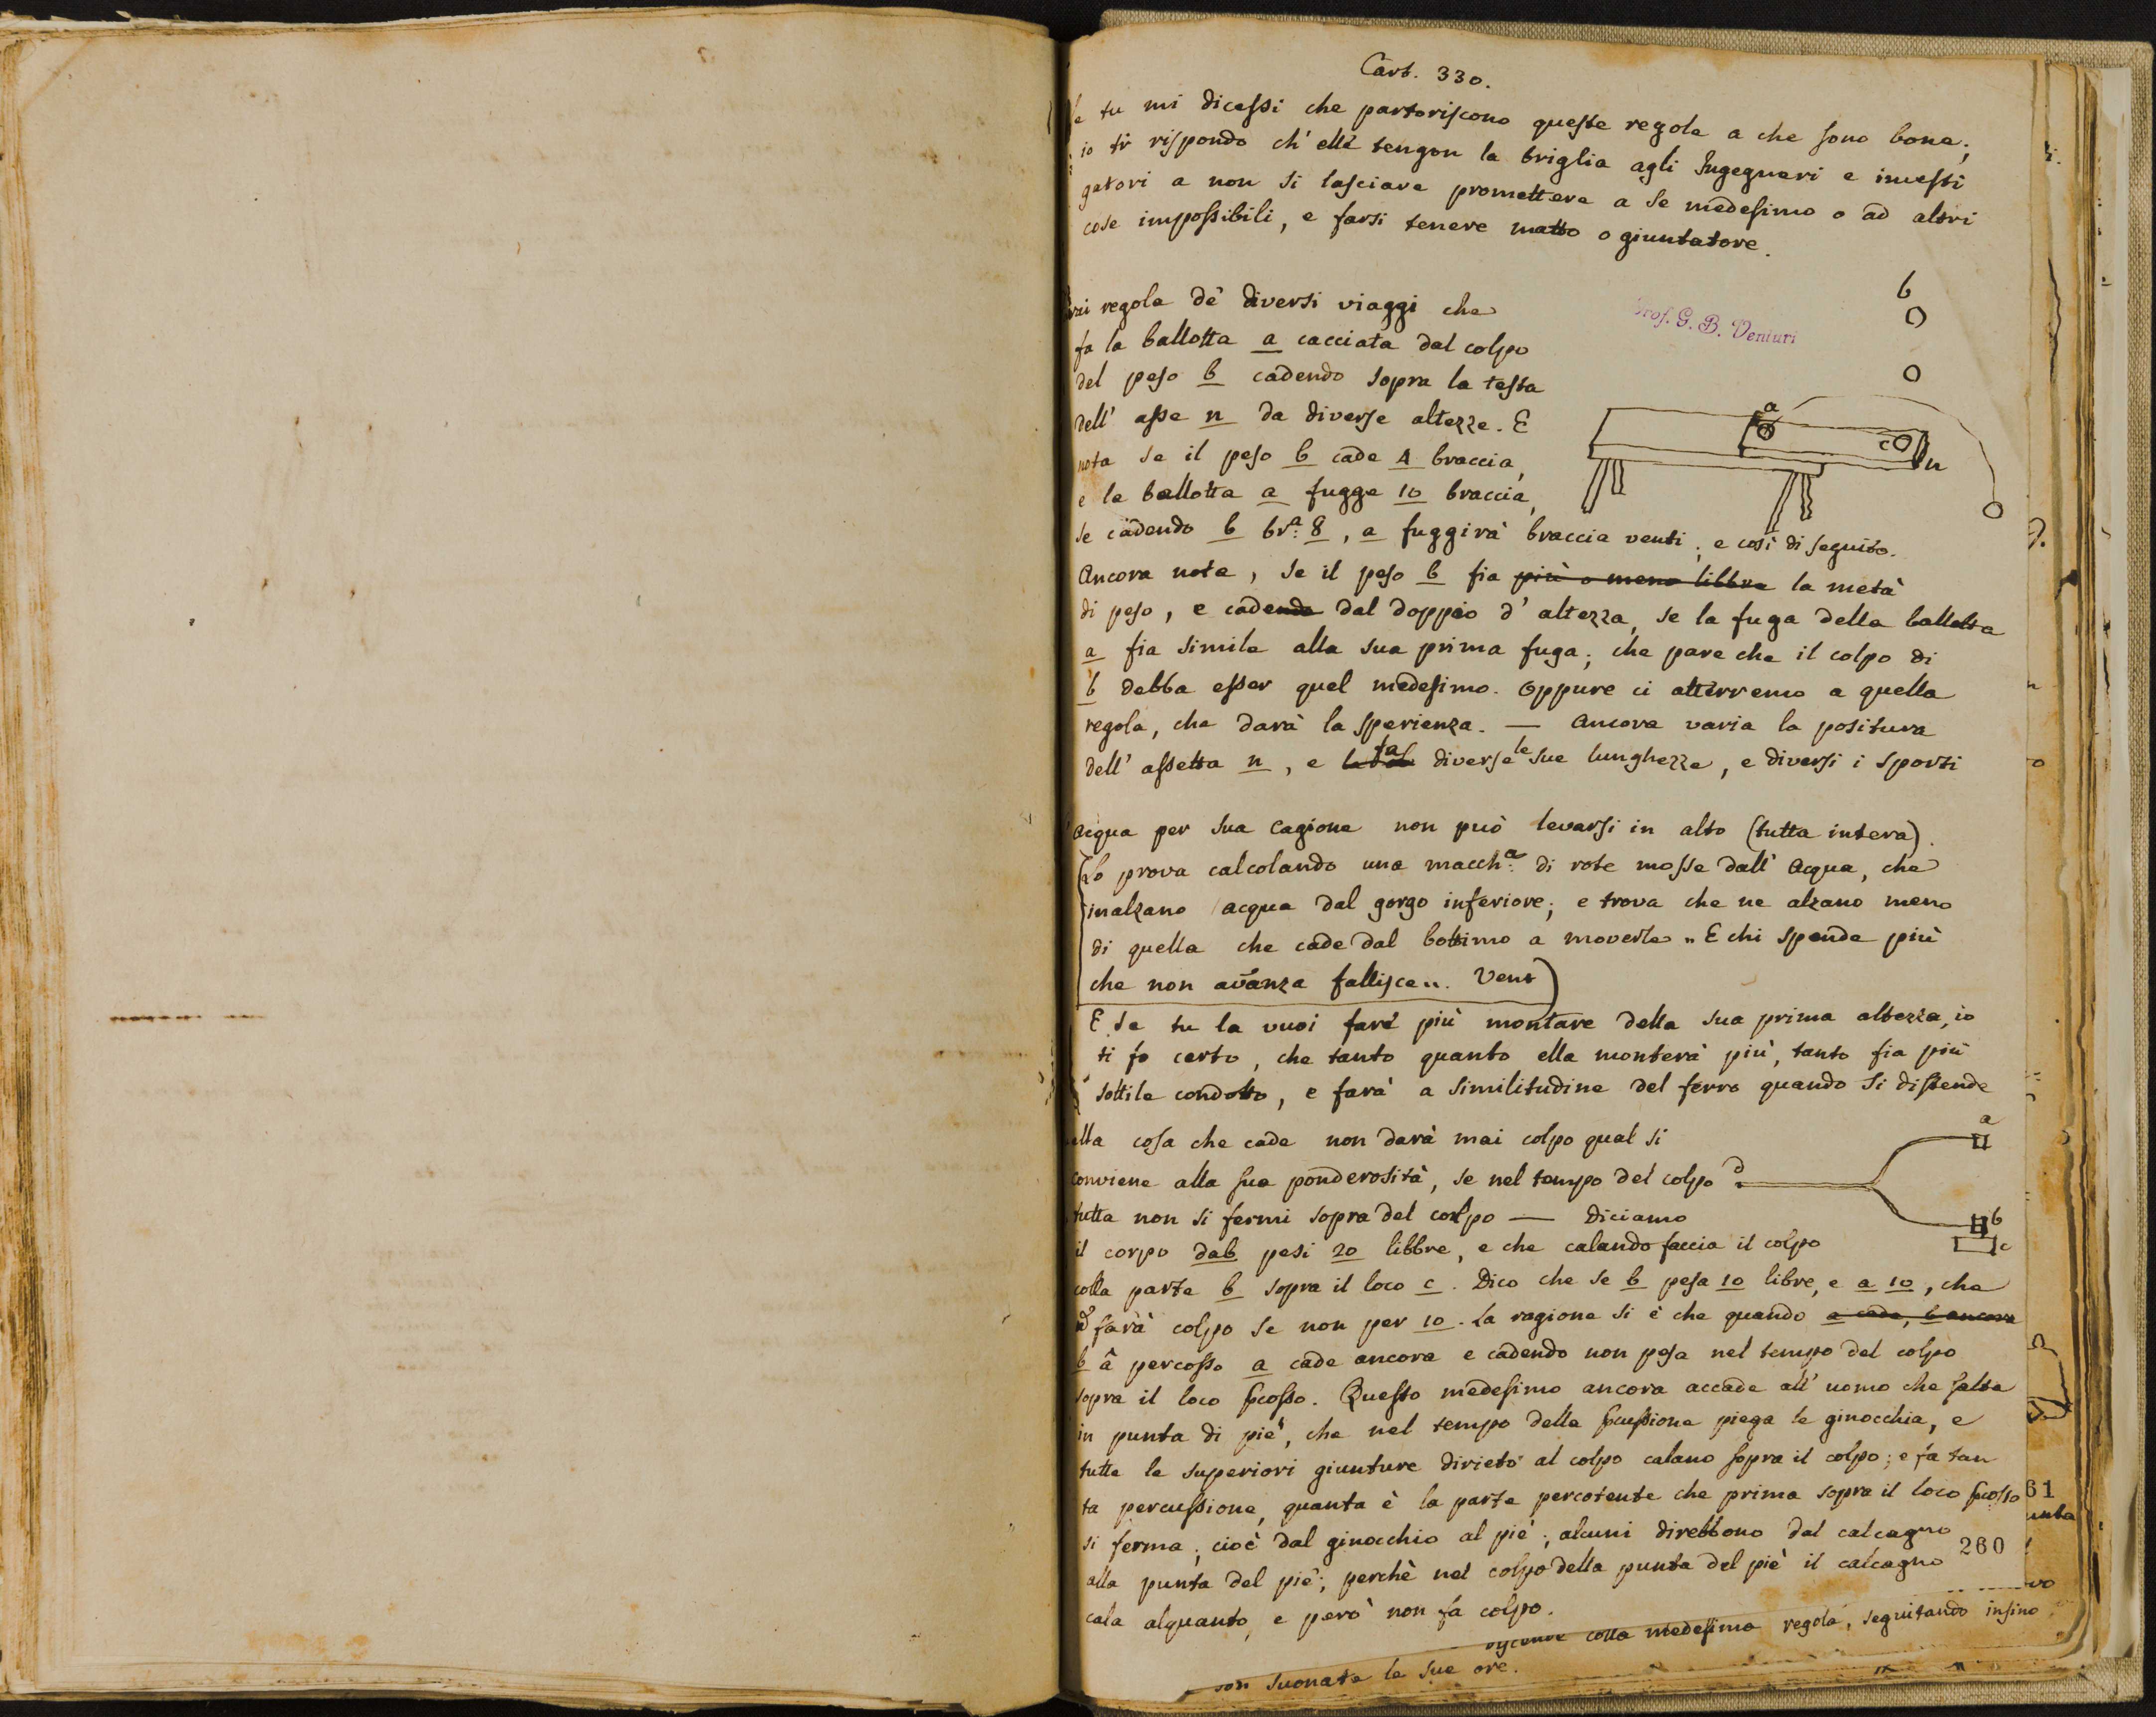 Cart. 330.
se tu mi dicessi che partoriscono queste regole a che sono bone;
io ti rispondo ch'elle tengon la briglia agli Ingegneri e investi
gatori a non si lasciare promettere a se medesimo o ad altri
cose impossibili, e farsi tenere matto o giuntatore.
regola de' diversi viaggi che
fa la ballotta a cacciata dal colpo
del peso b cadendo sopra la testa
dell' asse n da diverse altezze. E
nota se il peso b cade 4 braccia,
e la ballotta a fugge 10 braccia,
se cadendo b br.ª 8, a fuggirà braccia venti; e così di seguito.
Ancora nota, se il peso b fia più o meno libbre la metà
di peso, e cadende dal doppio d' altezza, se la fuga della ballotta
a fia simile alla sua prima fuga; che pare che il colpo di
b debba esser quel medesimo. Oppure ci atterremo a quella
regola, che darà la sperienza. — Ancora varia la positura
dell' assetta n, e fa diverse le sue lunghezze, e diversi i sporti
Prof. G. B. Venturi
b
a
c
n
Acqua per sua cagione non può levarsi in alto (tutta intera).
(Lo prova calcolando una macch.ª di rote mosse dall' Acqua, che
inalzano acqua dal gorgo inferiore; e trova che ne alzano meno
di quella che cade dal bottino a moverle „ E chi spende più
che non avanza fallisce „. Vent)
E se tu la vuoi fare più montare della sua prima altezza, io
ti fo certo, che tanto quanto ella monterà più, tanto fia più
sottile condotto, e farà a similitudine del ferro quando si distende
ella cosa che cade non darà mai colpo qual si
conviene alla sua ponderosità, se nel tempo del colpo
tutta non si fermi sopra del colpo — diciamo
il corpo dab pesi 20 libbre, e che calando faccia il colpo
colla parte b sopra il loco c. Dico che se b pesa 10 libre, e a 10, che
nō farà colpo se non per 10. La ragione si è che quando a cade, b ancora
b â percosso a cade ancora e cadendo non pesa nel tempo del colpo
sopra il loco scosso. Questo medesimo ancora accade all' uomo che salta
in punta di piè, che nel tempo della scussione piega le ginocchia, e
tutte le superiori giunture dirieto al colpo calano sopra il colpo; e fa tan
ta percussione, quanta è la parte percotente che prima sopra il loco scosso
si ferma; cioè dal ginocchio al piè; alcuni direbbono dal calcagno
alla punta del piè; perchè nel colpo della punta del piè il calcagno
cala alquanto, e però non fa colpo.
a
d
b
c
260
61
colla medesima regola, seguitando insino
son suonate le sue ore.